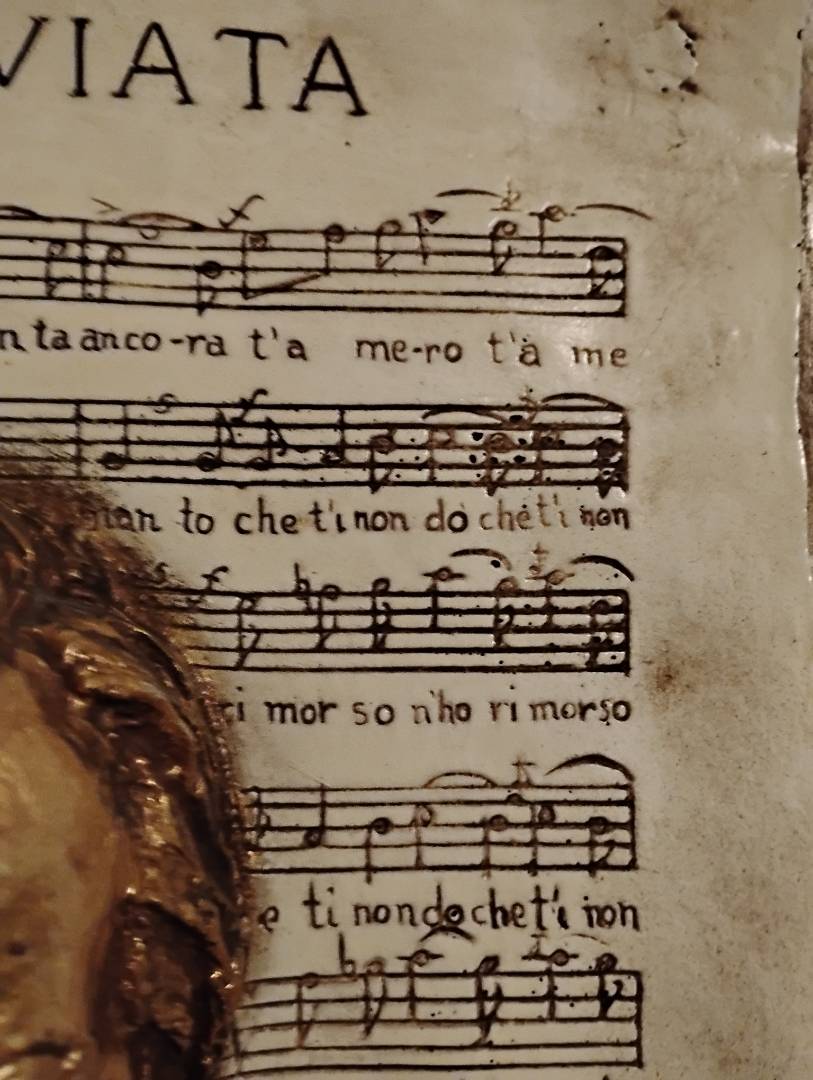 VIATA
n ta anco-ra t'a me-ro t'à me
man to che t'i non dò che t'i non
ri mor so n'ho ri morso
e ti non do che t'i non